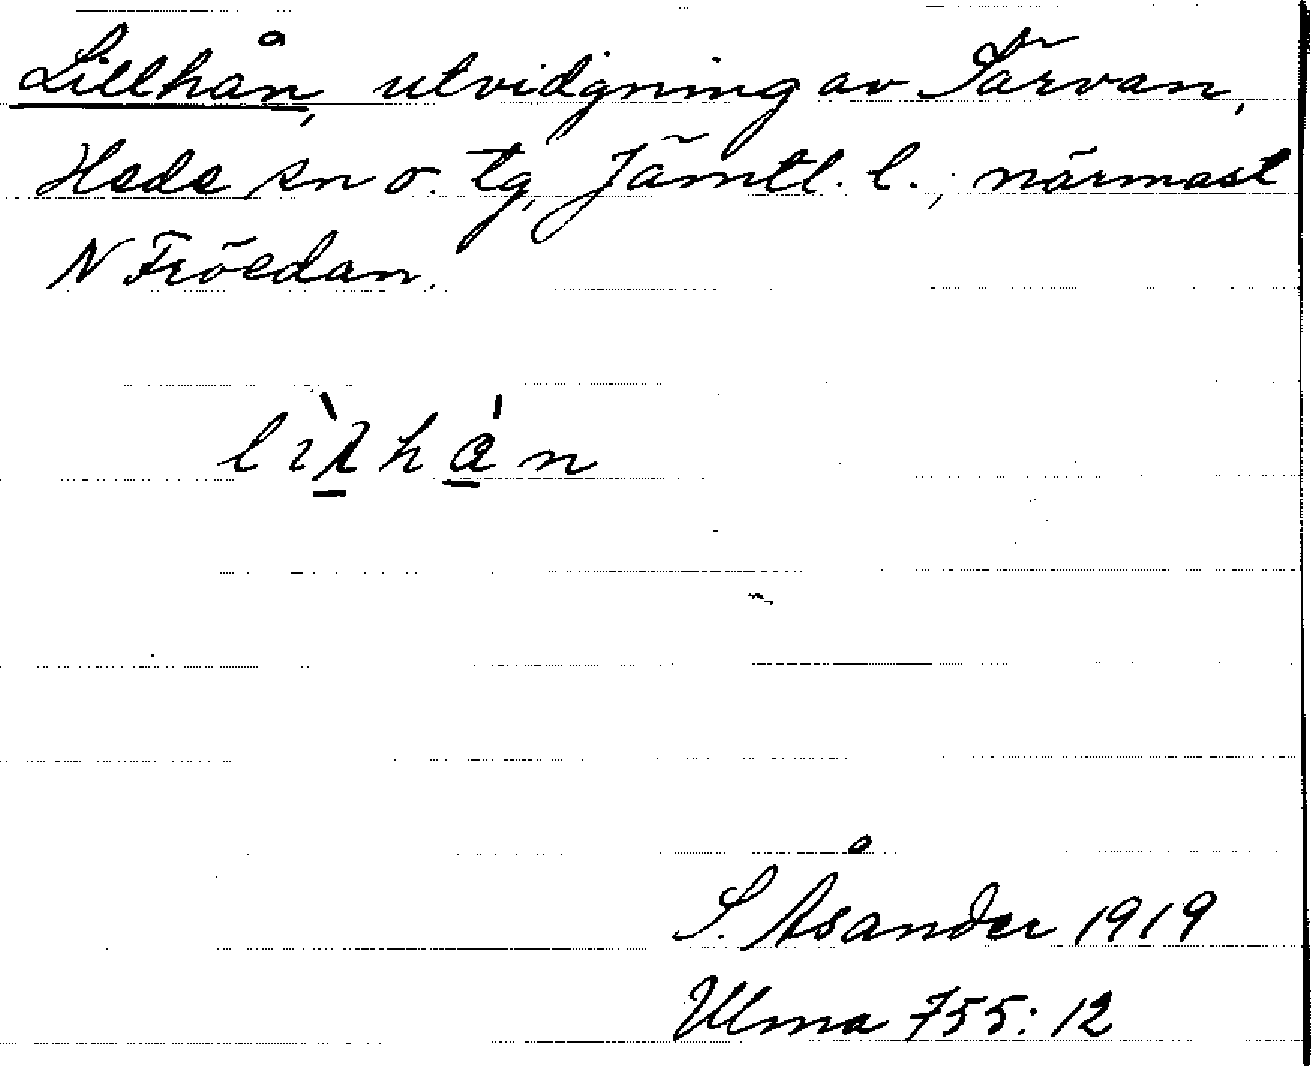 Lillhån, utvidgning av Särvan,
Hede sn o. tg, Jämtl. l., närmast
N Fröedan.
lìlhån
S. Åsander 1919
Ulma 755: 12